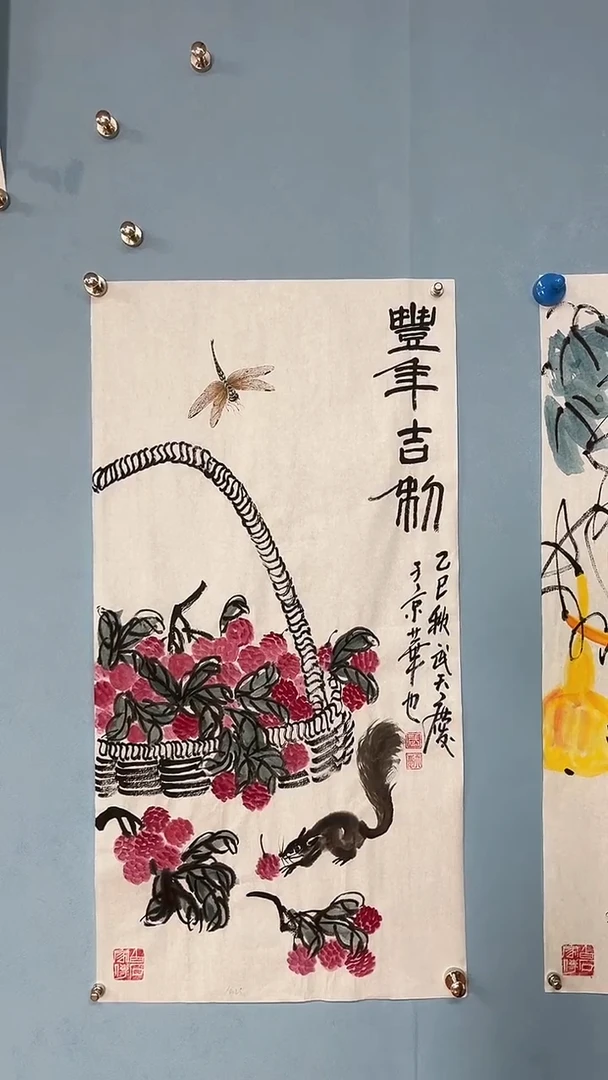 豐年吉利
乙巳秋武天慶
于京華也